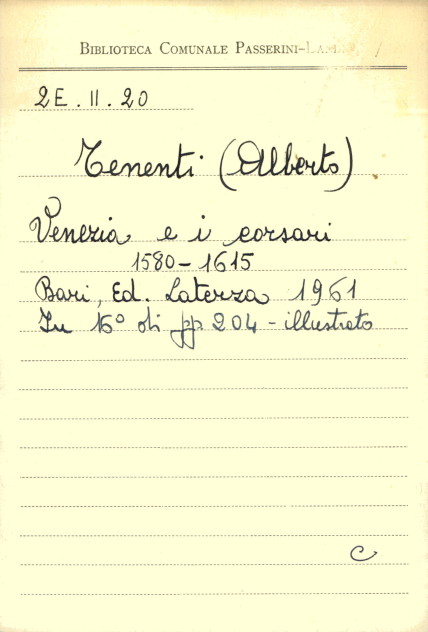 BIBLIOTECA COMUNALE PASSERINI-LANDI
2E.II.20
Tenenti (Alberto)
Venezia e i corsari
1580-1615
Bari, Ed. Laterza 1961
In 16° di pp 204 - illustrato
C